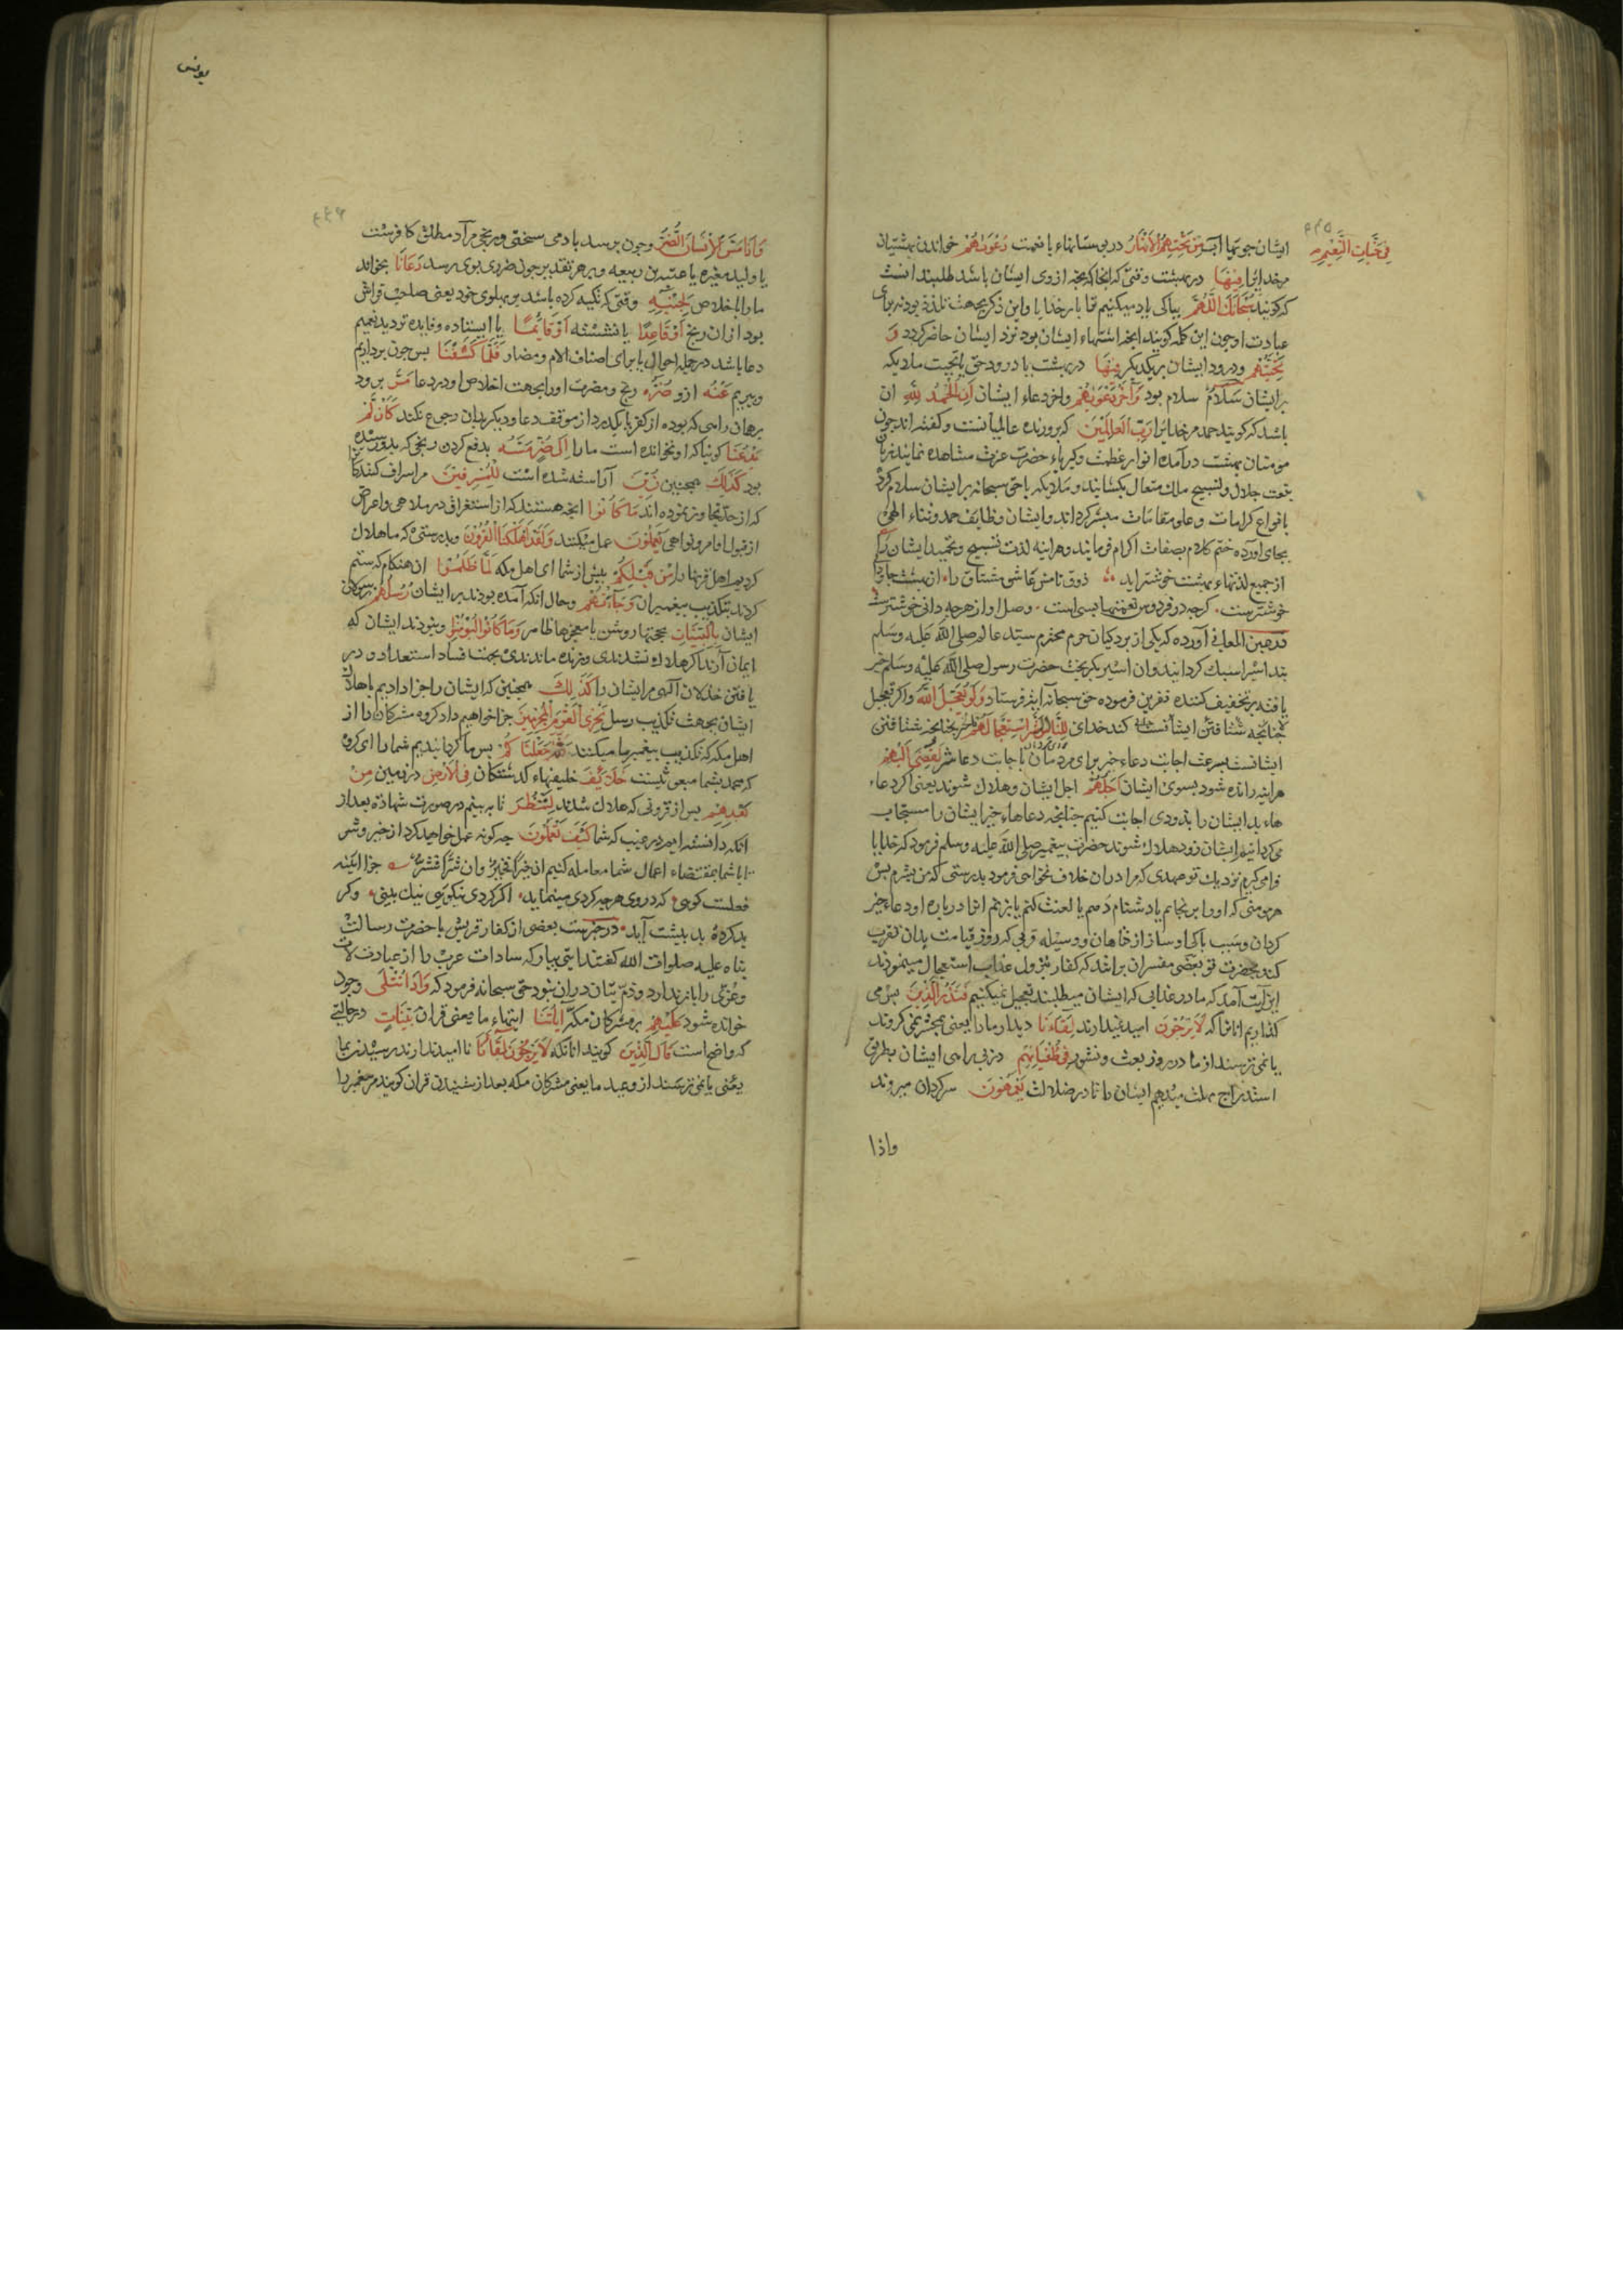 فی جنات النعیم
ایشان جویها اب من تحتهم الانهار در بوستانهاء با نعمت دعویهم خواندن بهشتیان
مر خدایرا فیها در بهشت وقتی که انجا که بخه ازوی ایشان باشد طلبند انست
که کویند سبحانک اللهم بپاکی یاد میکنیم ترا بار خدایا واین ذکر بجهت تلذذ بود نه برای
عبادت او چون این کلمه کویند انچه اشتهاء ایشان بود نزد ایشان حاضر کردد و
تحیتهم ودرود ایشان بر یکدیکر فیها در بهشت یا درود حق یا تحیت ملایکه
بر ایشان سلام سلام بود وآخر دعویهم واخر دعاء ایشان ان الحمد لله ان
باشد که کویند حمد مر خدایرا رب العالمین که پرورنده عالمیانست وکفته اند چون
مومنان بهشت درآمده انوار عظمت وکبریاء حضرت عزت مشاهده نمایند زبان
بنعت جلال وتسبیح ملک متعال بکشایند وملایکه یا حق سبحانه بر ایشان سلام کرده
بانواع کرامات وعلو مقامات مبشر کرداند وایشان وظایف حمد وثناء الهی
بجای اورده ختم کلام بصفات اکرام فرمایند وهراینه لذت تسبیح وتحمید ایشان را
از جمیع لذتهاء بهشت خوشتر اید ذوق نامش عاشق مشتاق را از بهشت جاودانی
خوشترست کرچه در فردوس نعمتها بسی است وصل او از هرچه دانی خوشترست
در عین المعانی آورده که یکی از بردکیان حرم محترم سید عالم صلی الله علیه وسلم
بند اسیرا سبک کردانید وان اسیر بکریخت حضرت رسول صلی الله علیه وسلم خبر
یافته بر تخفیف کننده نفرین فرموده حق سبحانه ایة فرستاد ولو یعجل الله واکر تعجیل
کند خدای للناس الشر استعجالهم بالخیر چنانچه شتافتن
ایشانست بسرعت اجابت دعاء خیر برای مردمان باجابت دعا شر لقضی الیهم
هراینه رانده شود بسوی ایشان اجلهم اجل ایشان وهلاک شوند یعنی اکر دعاء
هاء بد ایشان را بزودی اجابت کنیم چنانچه دعاهاء خیر ایشان را مستجاب
میکردانیم ایشان زود هلاک شوند حضرت پیغمبر صلی الله علیه وسلم فرمود که خدایا
فرا میکیرم نزدیک تو عهدی که مرا دران خلاف نخواهی فرمود بدرستی که من بشرم پس
هر مومنی که اورا برنجانم یا دشنام دهم یا لعنت کنم یا بزنم انرا درباره او دعاء خیر
کردان وسبب پاکی او ساز از کناهان ووسیله قربی که روز قیامت بدان تقرب
کند بحضرت تو بعضی مفسران برانند که کفار بنزول عذاب استعجال مینمودند
این آیت آمد که ما در عذابی که ایشان میطلبند تعجیل نمیکنیم فنذر الذین پس می
کذاریم انانرا که لا یرجون امید نمیدارند لقاءنا دیدار ما را یعنی بحشر نمی کروند
یا نمی ترسند از ما در روز بعث ونشور فی طغیانهم در بی راهی ایشان بطریق
استدراج مهلت میدهیم ایشان را تا در ضلالت یعمهون سرکردان میروند
واذا
یونس
واذا مس الانسان الضر وچون برسد بادمی سختی ورنجی مراد مطلق کافرست
یا ولید مغیره یا عتبه بن ربیعه وبر هر تقدیر چون ضرری بوی رسد دعانا بخواند
ما را باخلاص لجنبه وقتی که تکیه کرده باشد بر پهلوی خود یعنی صاحب فراش
بود از ان رنج او قاعدا یا نشسته او قائما یا ایستاده وفایده تردید تعمیم
دعا باشد در جمله احوال یا برای اصناف الام ومضار فلما کشفنا پس چون برداریم
وببریم عنه ازو ضره رنج ومضرت اورا بجهت اخلاص او در دعا مر برود
بر همان راهی که بوده از کفر یا بکذرد از موقف دعا ودیکر بدان رجوع نکند کان لم
یدعنا کوئیا که او نخوانده است ما را الی ضر مسه بدفع کردن رنجی که بدو رسیده
بود کذلک همچنین زین آراسته شده است للمسرفین مر اسراف کنندکان
که از حد تجاوز نموده اند ما کانوا انچه هستند که از استغراق در ملاهی واعراض
از قبول اوامر ونواهی یعملون عمل میکنند ولقد اهلکنا القرون وبدرستی که ما هلاک
کردیم اهل قرنها را من قبلکم پیش از شما ای اهل مکه لما ظلموا ان هنکام که ستم
کردند بتکذیب پیغمبران وجاءتهم وحال انکه آمده بودند بر ایشان رسلهم رسولان
ایشان بالبینات بحجتها روشن یا معجزها ظاهر وما کانوا لیومنوا ونبودند ایشان که
ایمان آرند اکر هلاک نشدندی وزنده ماندندی بجهت فساد استعداد ودر
یافتن خذلان الهی مر ایشان را کذلک همچنین که ایشان را جزا دادیم باهلاک
ایشان بجهت تکذیب رسل نجزی القوم المجرمین جزا خواهیم داد کروه مشرکان را از
اهل مکه که تکذیب پیغمبر ما میکنند ثم جعلناکم پس ما کردانیدیم شما را ای کروه
که محمد بشما مبعوثست خلائف خلیفهاء کذشتکان فی الارض در زمین من
بعدهم پس از قرونی که هلاک شدند لننظر تا به بینم در صورت شهادة بعد از
انکه دانسته ایم در غیب که شما کیف تعملون چه کونه عمل خواهید کرد از خیر وشر
تا با شما بمقتضاء اعمال شما معامله کنیم ان خیرا فخیر وان شرا فشر جزا اینه
فعلست کوهی که دروی هرچه کردی مینماید اکر کردی نیکویی نیک بینی وکر
بد کرده بد پیشت آید در خبرست بعضی از کفار قریش با حضرت رسالت
پناه علیه صلوات الله کفتند ایتی بیاور که سادات عرب را از عبادت لات
وعزی را باز ندارد وذم بتان دران نبود حق سبحانه فرمود که واذا تتلی وچون
خوانده شود علیهم بر مشرکان مکه آیاتنا ایتهاء ما یعنی قران بینات در حالتی
که واضح است قال الذین کویند انانکه لا یرجون لقاءنا نا امیدندارند رسیدن بما
یعنی یا نمی ترسند از وعید ما یعنی مشرکان مکه بعد از شنیدن قران کویند مر پیغمبر را